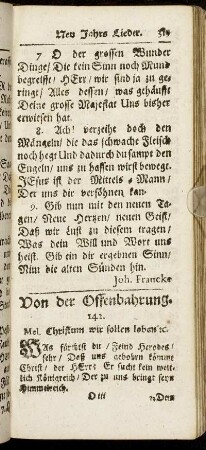 Neu Jahrs Lieder.
7 O der grossen Wunder
Dinge/ Die kein Sinn noch Mund
begreifft/ HErr/ wir sind ja zu ge-
ringe/ Alles dessen/ was gehäufft
Deine grosse Majestat Uns bisher
erwiesen hat.
8. Ach! verzeihe doch den
Mängeln/ die das schwache Fleisch
noch hegt Und dadurch du sampt den
Engeln/ uns zu hassen wirst bewegt.
JEsus ist der Mittels-Mann/
Der uns dir versöhnen kan.
9. Gib nun mit den neuen Ta-
gen/ Neue Hertzen/ neuen Geist/
Daß wir Lust zu diesem tragen/
Was dein Will und Wort uns
heist. Gib ein dir ergebnen Sinn/
Nim die alten Sünden hin.
Joh. Francke
Von der Offenbahrung.
142.
Mel. Christum wir sollen loben ꝛc.
WAs fürchtst du/ Feind Herodes/
sehr/ Daß uns gebohrn kömme
Christ/ der HErr? Er sucht kein welt-
lich Königreich/ Der zu uns bringt seyn
Himmelreich.
O iii